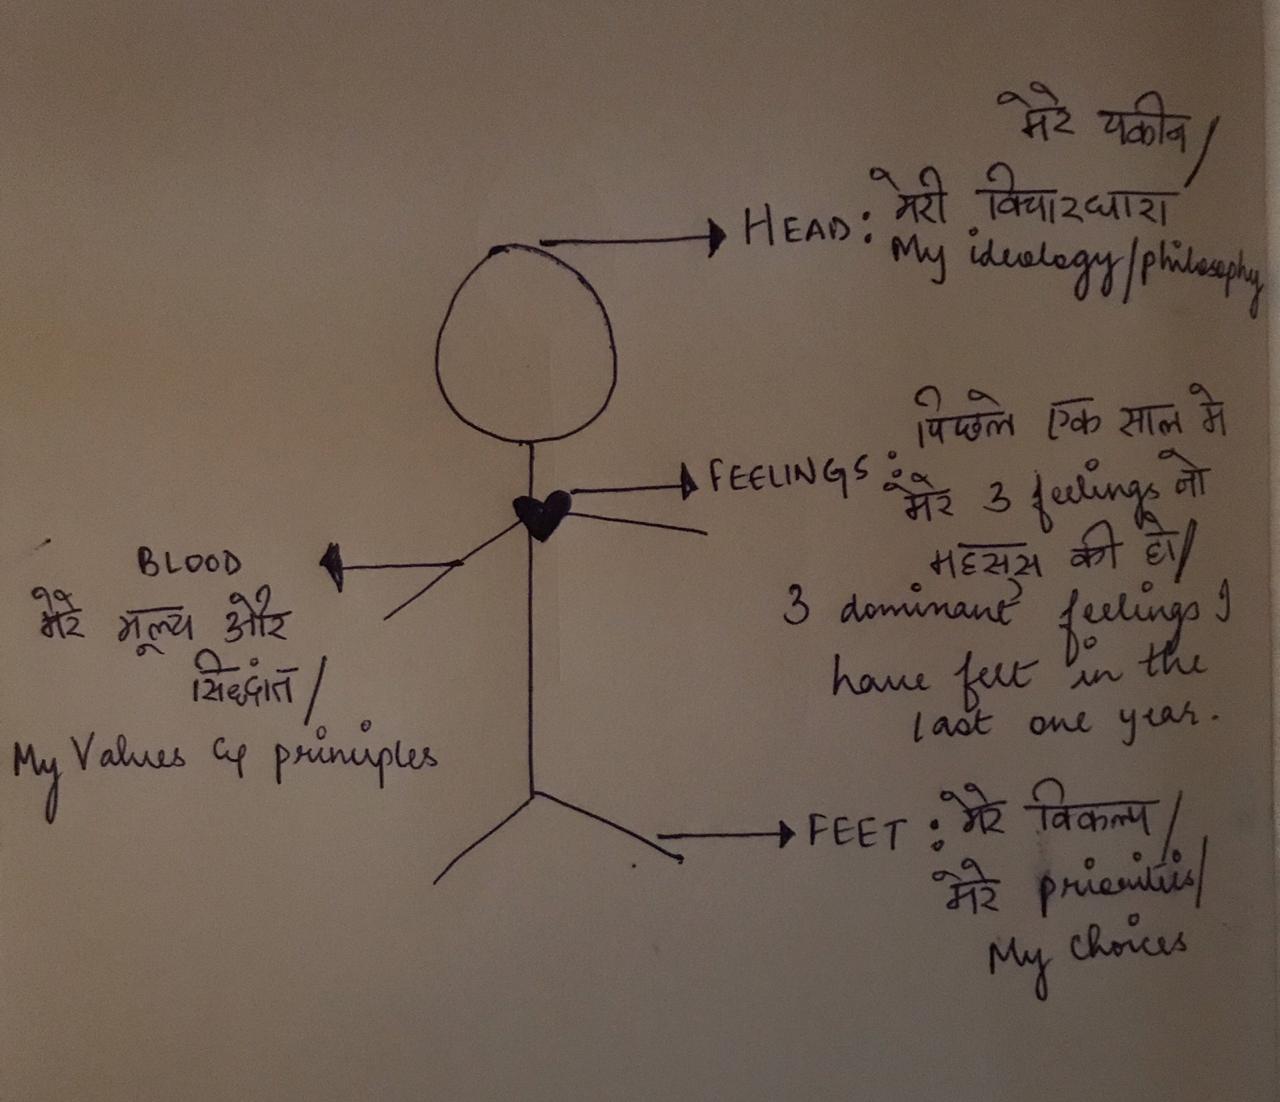 मेरे यकीन/
HEAD: मेरी विचारधारा
My ideology/philosophy
पिछले एक साल मे
FEELINGS: मेरे 3 feelings जो
महसूस की हो/
3 dominant feelings I
have felt in the
last one year.
BLOOD
मेरे मूल्य और
सिद्धांत/
My Values & principles
FEET: मेरे विकल्प/
मेरे priorities/
My choices